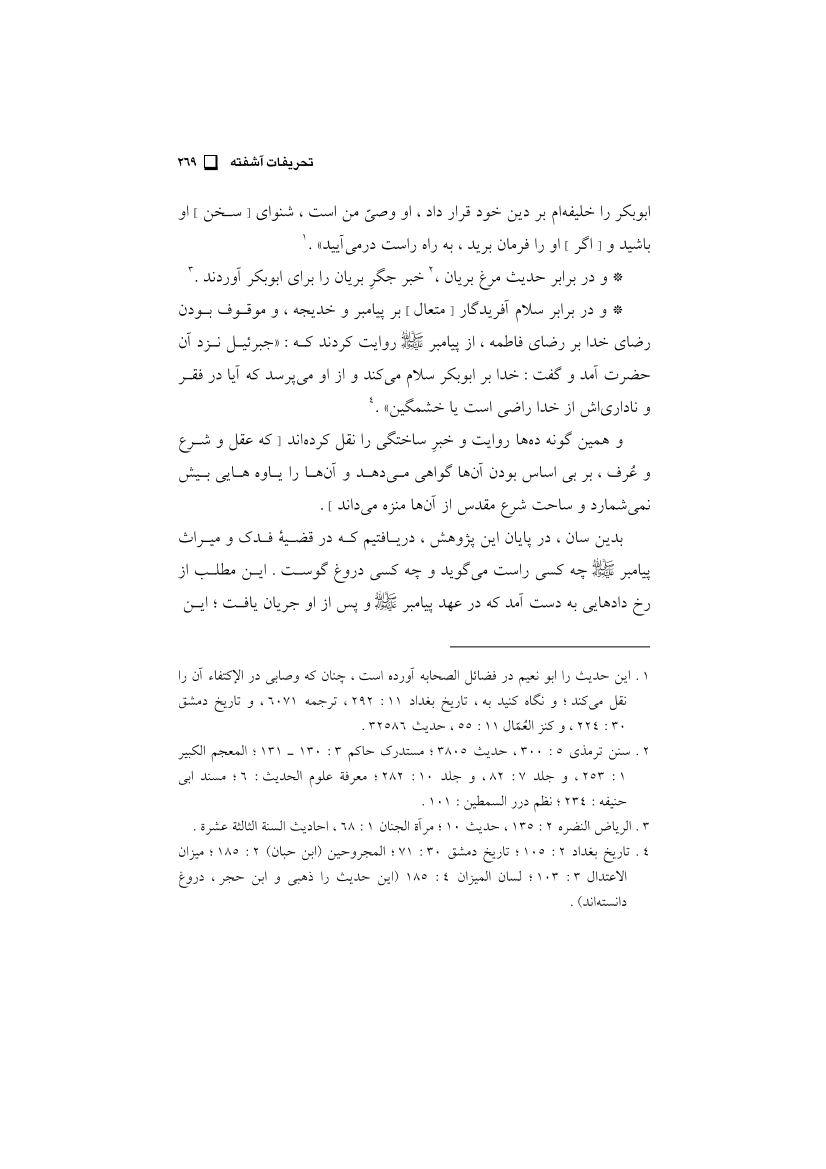 تحریفات آشفته ❑ ۲٦۹
ابوبکر را خلیفه‌ام بر دین خود قرار داد ، او وصیّ من است ، شنوای [ سـخن ] او
باشید و [ اگر ] او را فرمان برید ، به راه راست درمی‌آیید» .۱
* و در برابر حدیث مرغ بریان ،۲ خبر جگرِ بریان را برای ابوبکر آوردند .۳
* و در برابر سلام آفریدگار [ متعال ] بر پیامبر و خدیجه ، و موقـوف بـودن
رضای خدا بر رضای فاطمه ، از پیامبر ﷺ روایت کردند کـه : «جبرئیـل نـزد آن
حضرت آمد و گفت : خدا بر ابوبکر سلام می‌کند و از او می‌پرسد که آیا در فقـر
و ناداری‌اش از خدا راضی است یا خشمگین» .٤
و همین گونه ده‌ها روایت و خبرِ ساختگی را نقل کرده‌اند [ که عقل و شـرع
و عُرف ، بر بی اساس بودن آن‌ها گواهی مـی‌دهـد و آن‌هـا را یـاوه هـایی بـیش
نمی‌شمارد و ساحت شرع مقدس از آن‌ها منزه می‌داند ] .
بدین سان ، در پایان این پژوهش ، دریـافتیم کـه در قضـیهٔ فـدک و میـراث
پیامبر ﷺ چه کسی راست می‌گوید و چه کسی دروغ گوسـت . ایـن مطلـب از
رخ دادهایی به دست آمد که در عهد پیامبر ﷺ و پس از او جریان یافـت ؛ ایـن
۱ . این حدیث را ابو نعیم در فضائل الصحابه آورده است ، چنان که وصابی در الإکتفاء آن را
نقل می‌کند ؛ و نگاه کنید به ، تاریخ بغداد ۱۱ : ۲۹۲ ، ترجمه ٦۰۷۱ ، و تاریخ دمشق
۳۰ : ۲۲٤ ، و کنز العُمّال ۱۱ : ٥٥ ، حدیث ۳۲٥۸٦ .
۲ . سنن ترمذی ٥ : ۳۰۰ ، حدیث ۳۸۰٥ ؛ مستدرک حاکم ۳ : ۱۳۰ ـ ۱۳۱ ؛ المعجم الکبیر
۱ : ۲٥۳ ، و جلد ۷ : ۸۲ ، و جلد ۱۰ : ۲۸۲ ؛ معرفة علوم الحدیث : ٦ ؛ مسند ابی
حنیفه : ۲۳٤ ؛ نظم درر السمطین : ۱۰۱ .
۳ . الریاض النضره ۲ : ۱۳٥ ، حدیث ۱۰ ؛ مرآة الجنان ۱ : ٦۸ ، احادیث السنة الثالثة عشرة .
٤ . تاریخ بغداد ۲ : ۱۰٥ ؛ تاریخ دمشق ۳۰ : ۷۱ ؛ المجروحین (ابن حبان) ۲ : ۱۸٥ ؛ میزان
الاعتدال ۳ : ۱۰۳ ؛ لسان المیزان ٤ : ۱۸٥ (این حدیث را ذهبی و ابن حجر ، دروغ
دانسته‌اند) .